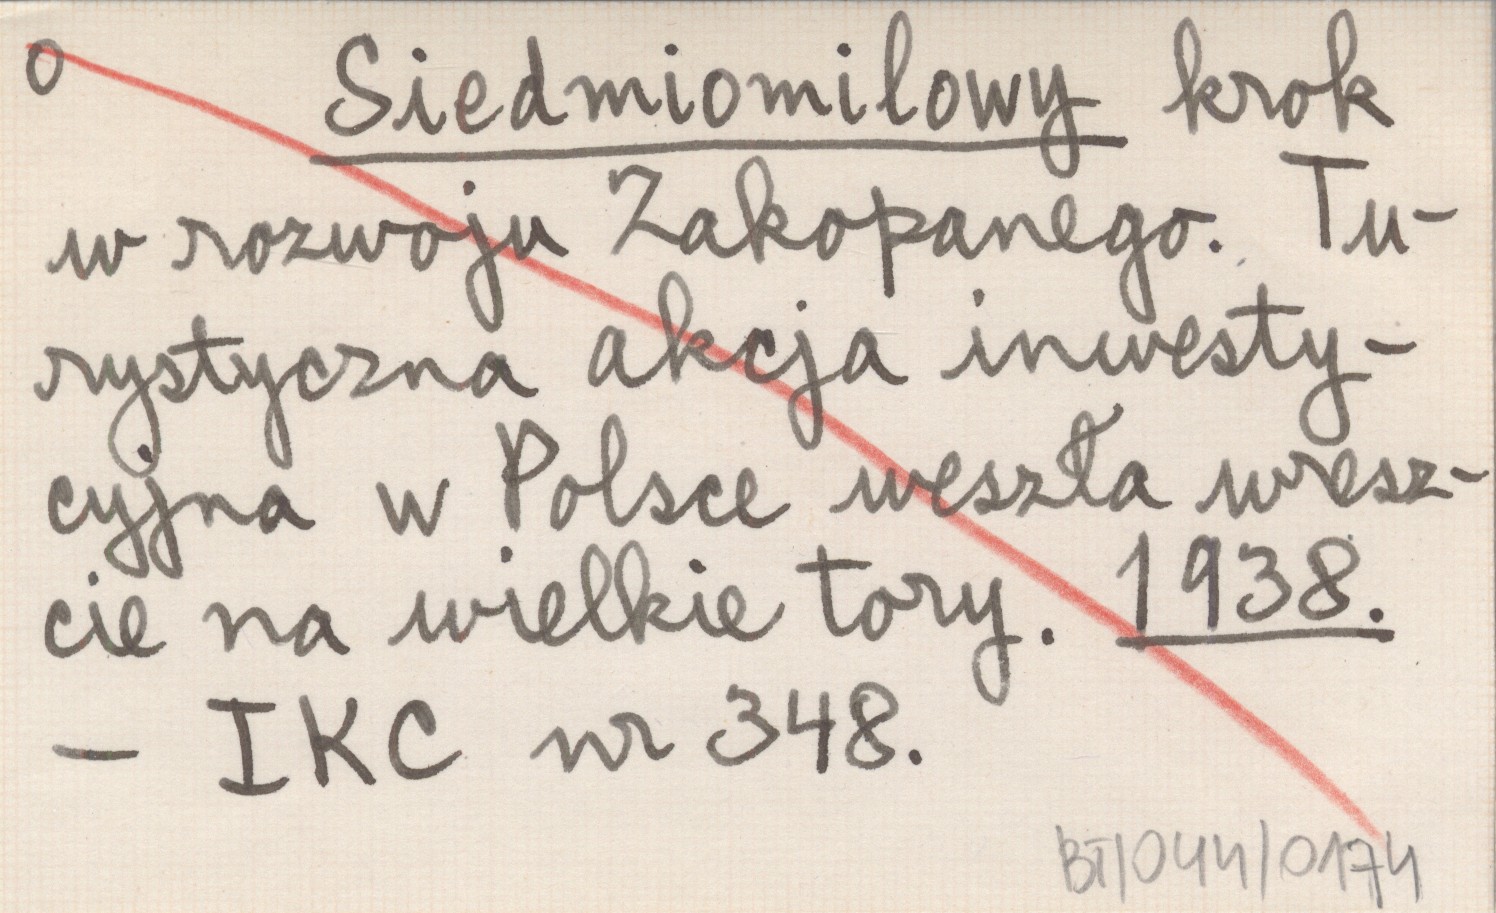 o Siedmiomilowy krok
w rozwoju Zakopanego. Tu-
rystyczna akcja inwesty-
cyjna w Polsce weszła wresz-
cie na wielkie tory. 1938.
— IKC nr 348.
BT/044/0174